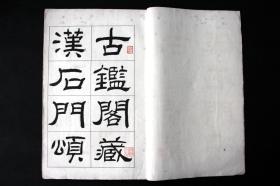 古鑑閣藏
漢石門頌